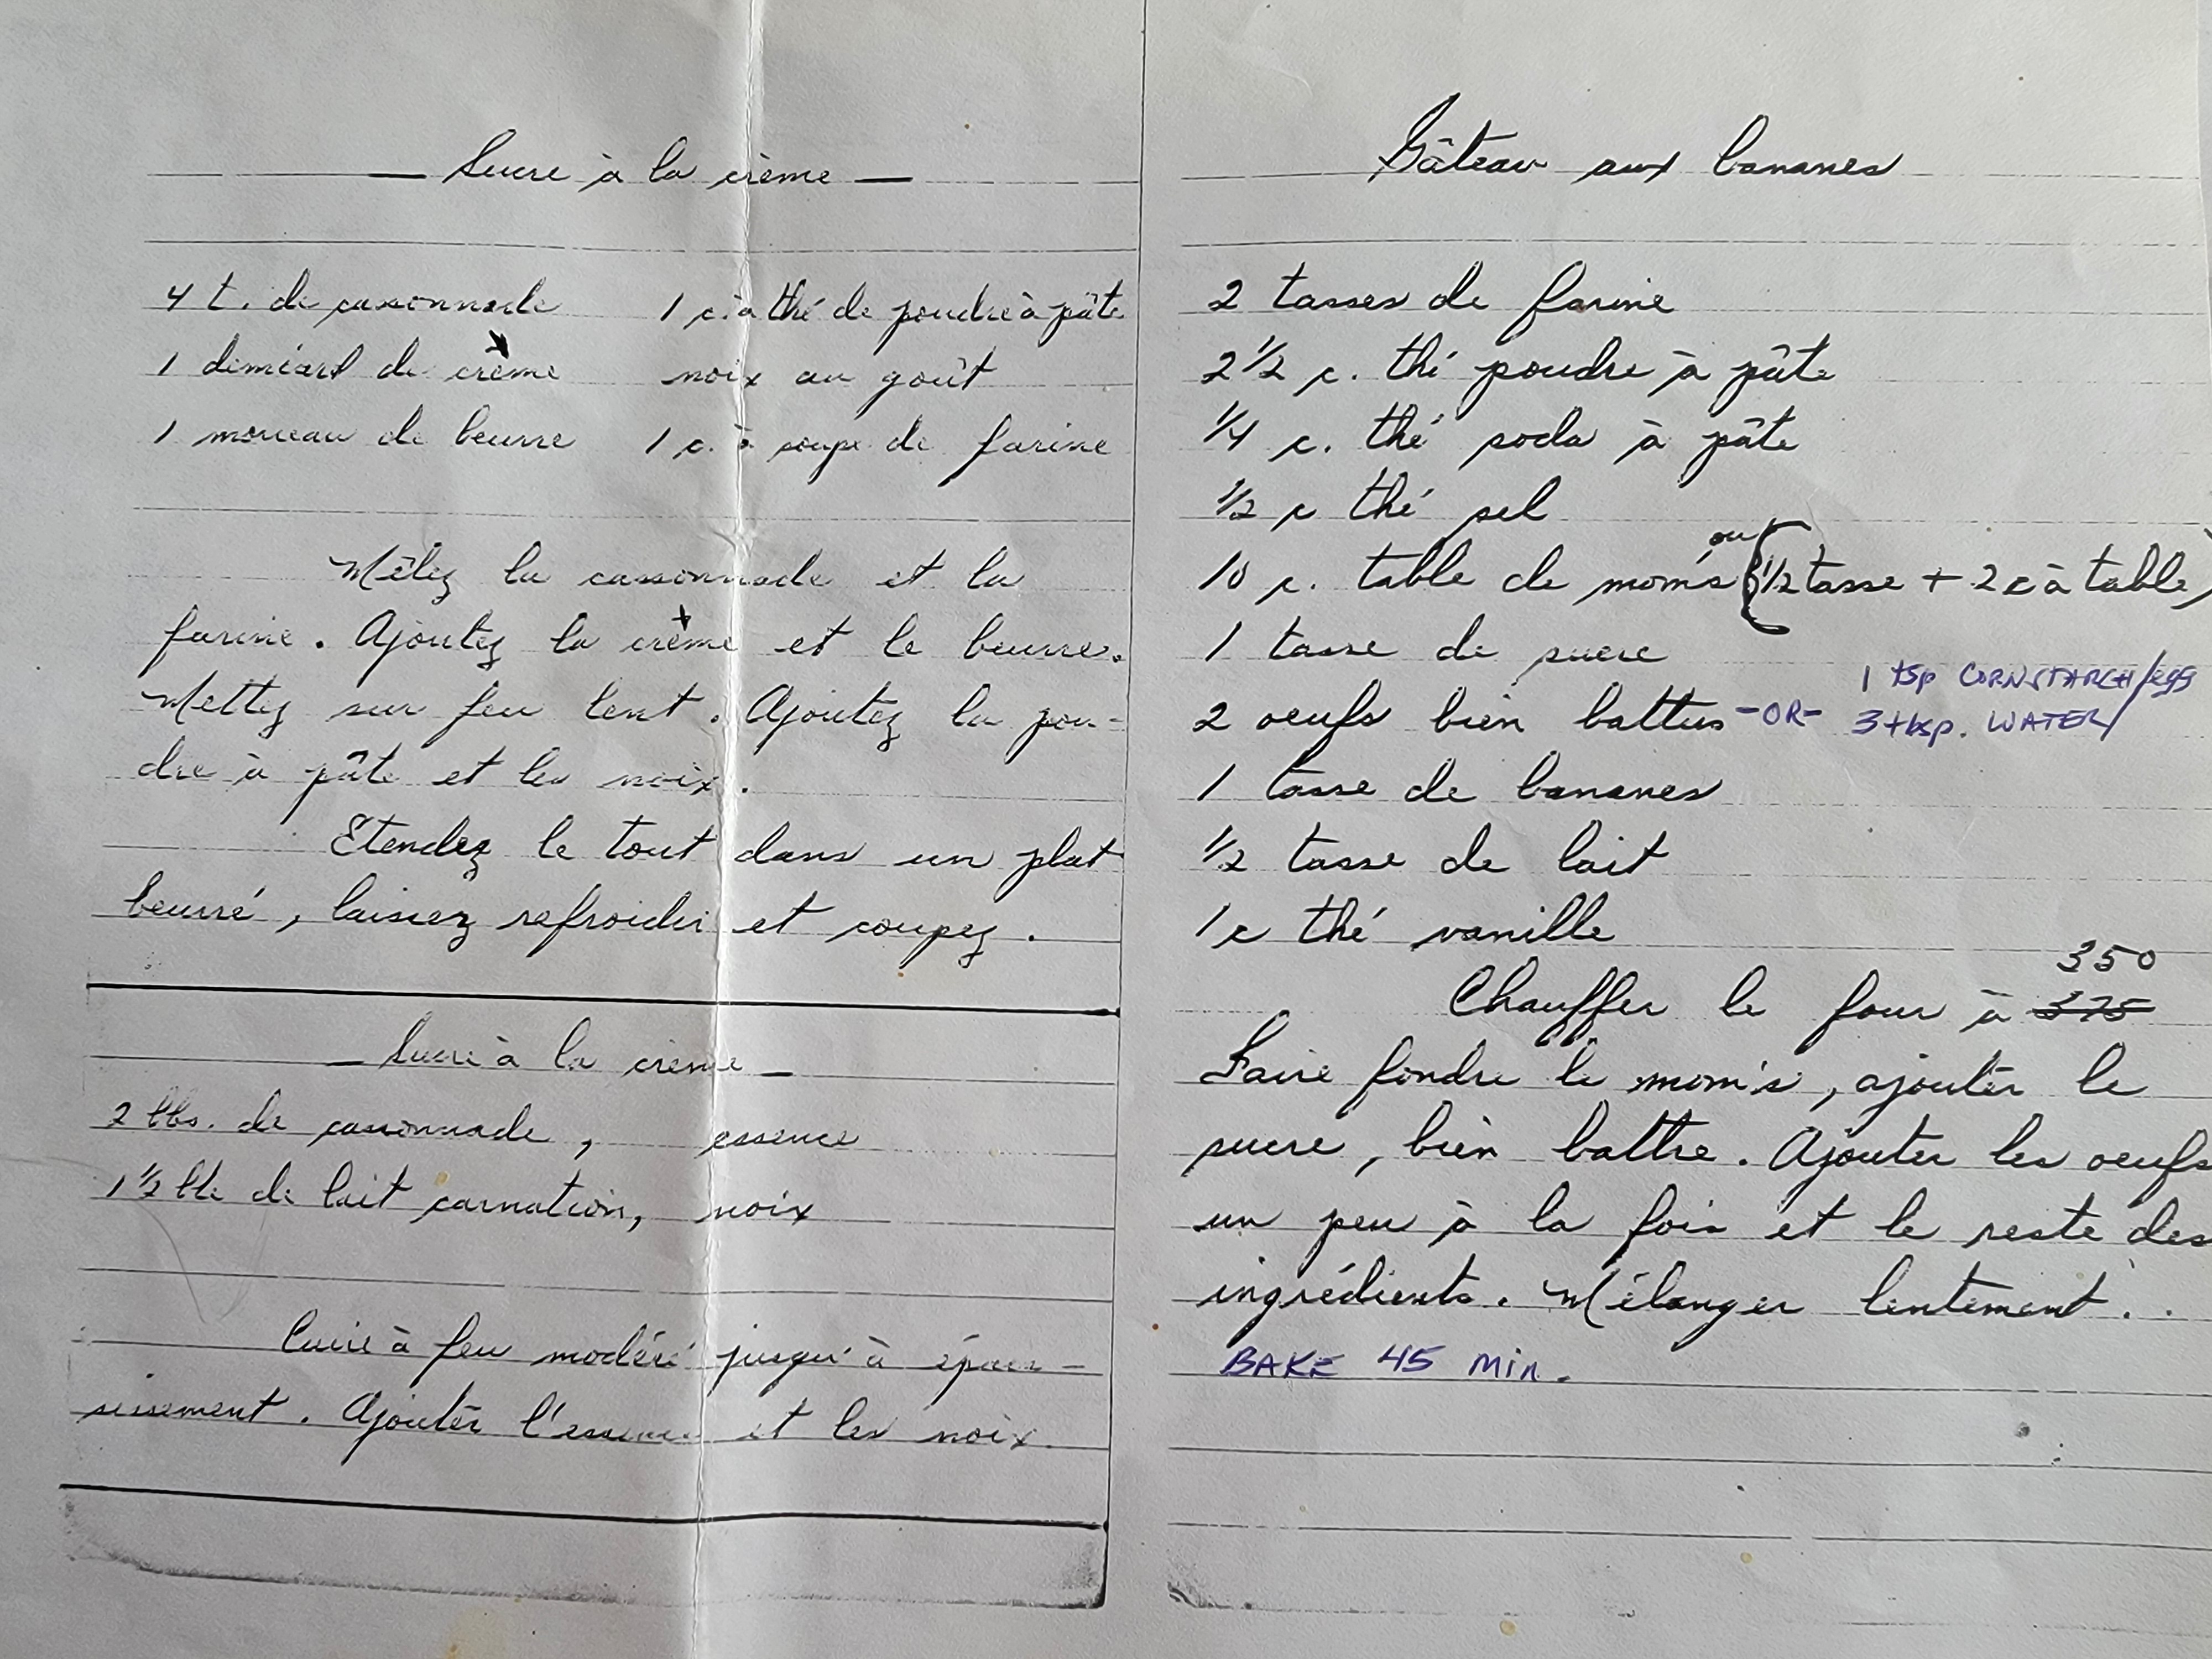 — Sucre à la crème —
4 t. de cassonnade 1 c. à thé de poudre à pâte
1 demiard de crème noix au goût
1 morceau de beurre 1 c. à soupe de farine
Mêlez la cassonnade et la
farine. Ajoutez la crème et le beurre.
Mettez sur feu lent. Ajoutez la pou-
dre à pâte et les noix.
Etendez le tout dans un plat
beurré, laissez refroidir et coupez.
— Sucre à la crème —
2 lbs. de cassonnade, essence
1 1/2 lbe de lait carnation, noix
Cuire à feu modéré jusqu'à épais-
sissement. Ajouter l'essence et les noix.
Gâteau aux bananes
2 tasses de farine
2 1/2 c. thé poudre à pâte
1/4 c. thé soda à pâte
1/2 c thé sel
10 c. table de mom's ou (1/2 tasse + 2 c à table)
1 tasse de sucre
2 oeufs bien battus -OR- 1 tsp CORNSTARCH/egg
3 tbsp. WATER/
1 tasse de bananes
1/2 tasse de lait
1 c thé vanille
350
Chauffer le four à 375
Faire fondre le mom's, ajouter le
sucre, bien battre. Ajouter les oeufs
un peu à la fois et le reste des
ingrédients. Mélanger lentement.
BAKE 45 Min.